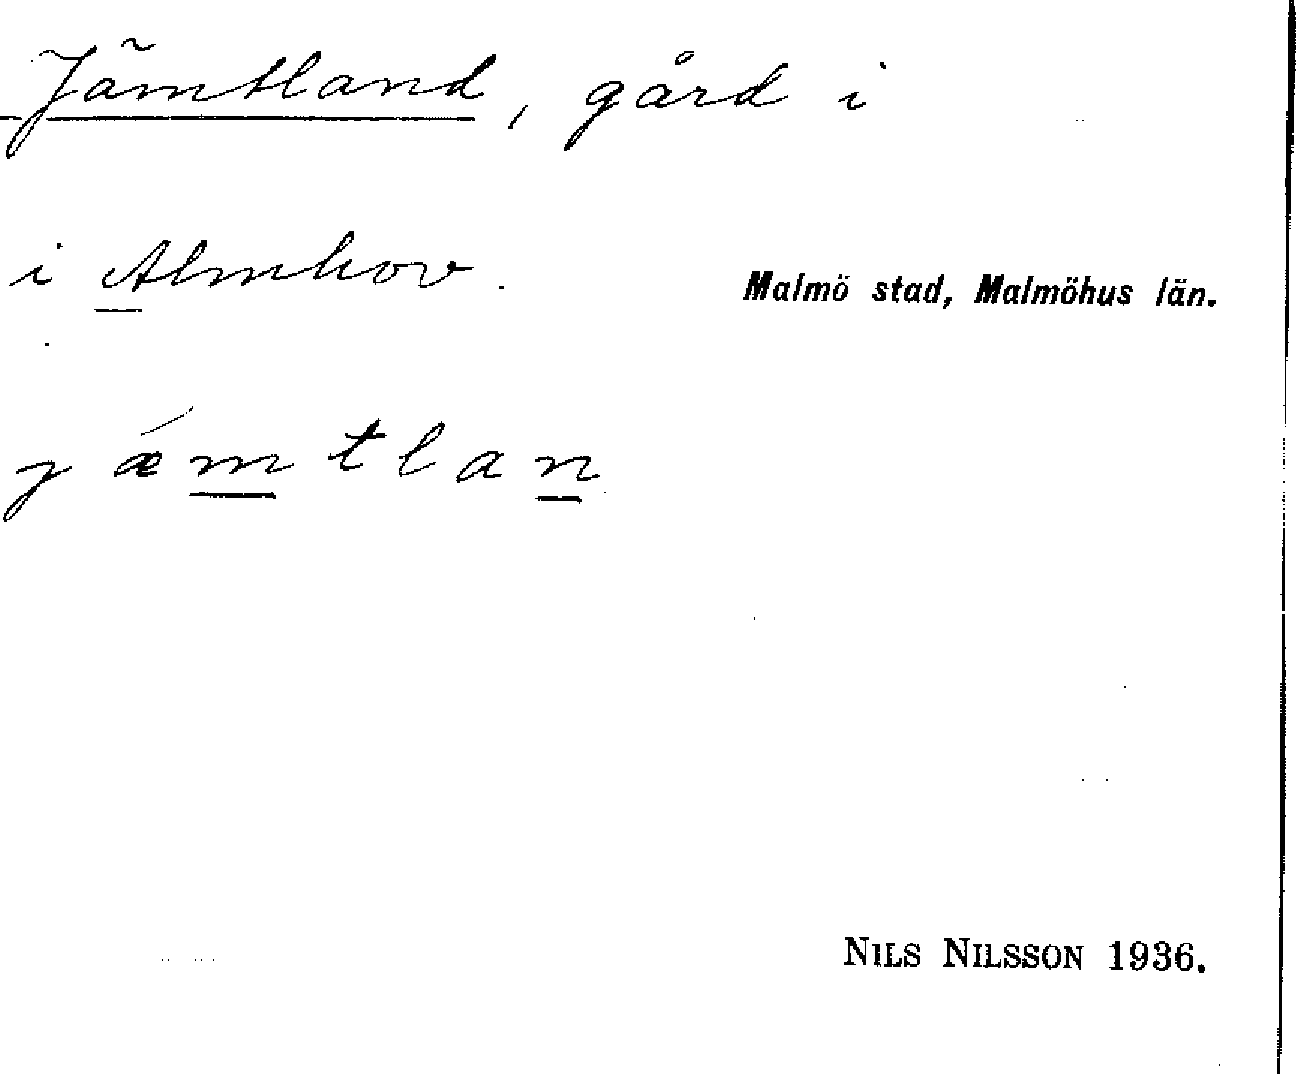 Jämtland, gård i
i Almhov.
Malmö stad, Malmöhus län.
jǽmtlan
NILS NILSSON 1936.